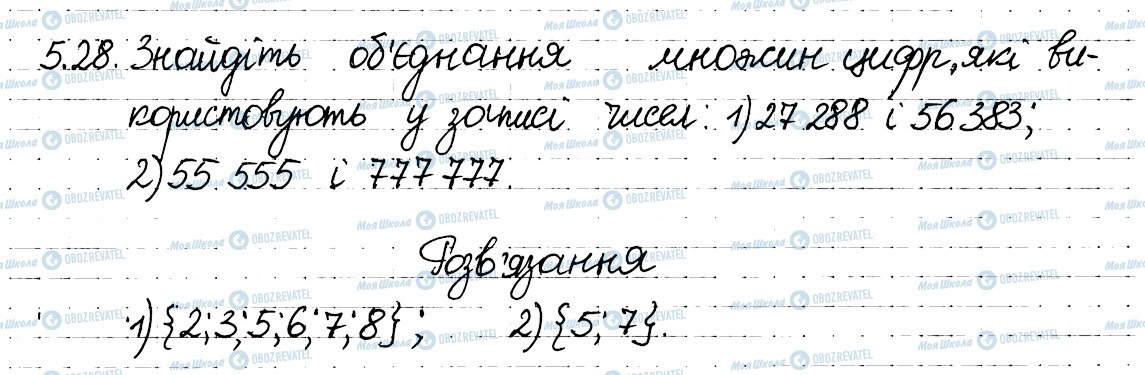 5.28. Знайдіть об'єднання множин цифр, які ви-
користовують у записі чисел: 1) 27 288 і 56 383;
2) 55 555 і 777 777.
Розв'язання
1) {2; 3; 5; 6; 7; 8}; 2) {5; 7}.